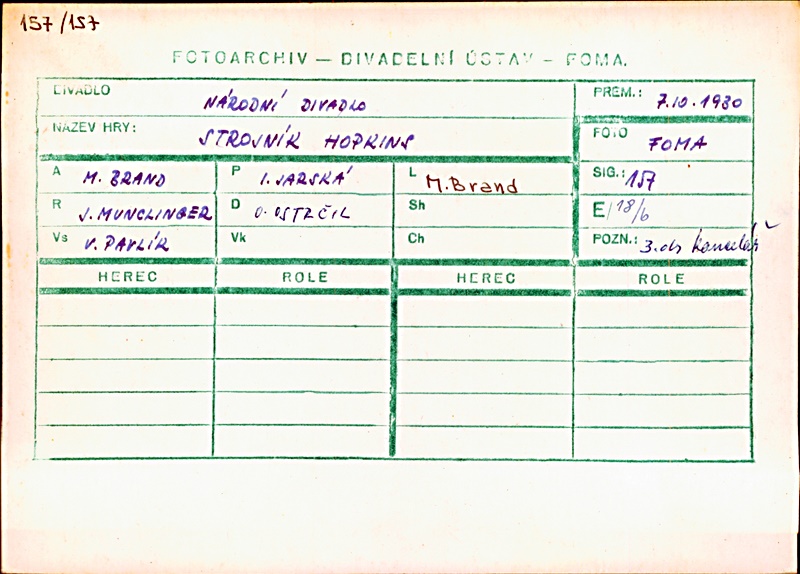 157/157
FOTOARCHIV — DIVADELNÍ ÚSTAV — FOMA.
DIVADLO NÁRODNÍ DIVADLO PREM.: 7.10.1930
NÁZEV HRY: STROJNÍK HOPKINS FOTO FOMA
A M. BRAND P I. JARSKÁ L M. Brand SIG.: 157
R J. MUNCLINGER D O. OSTRČIL Sh E/18/6
Vs V. PAVLÍK Vk Ch POZN.: 3. ob kancelář
HEREC ROLE HEREC ROLE